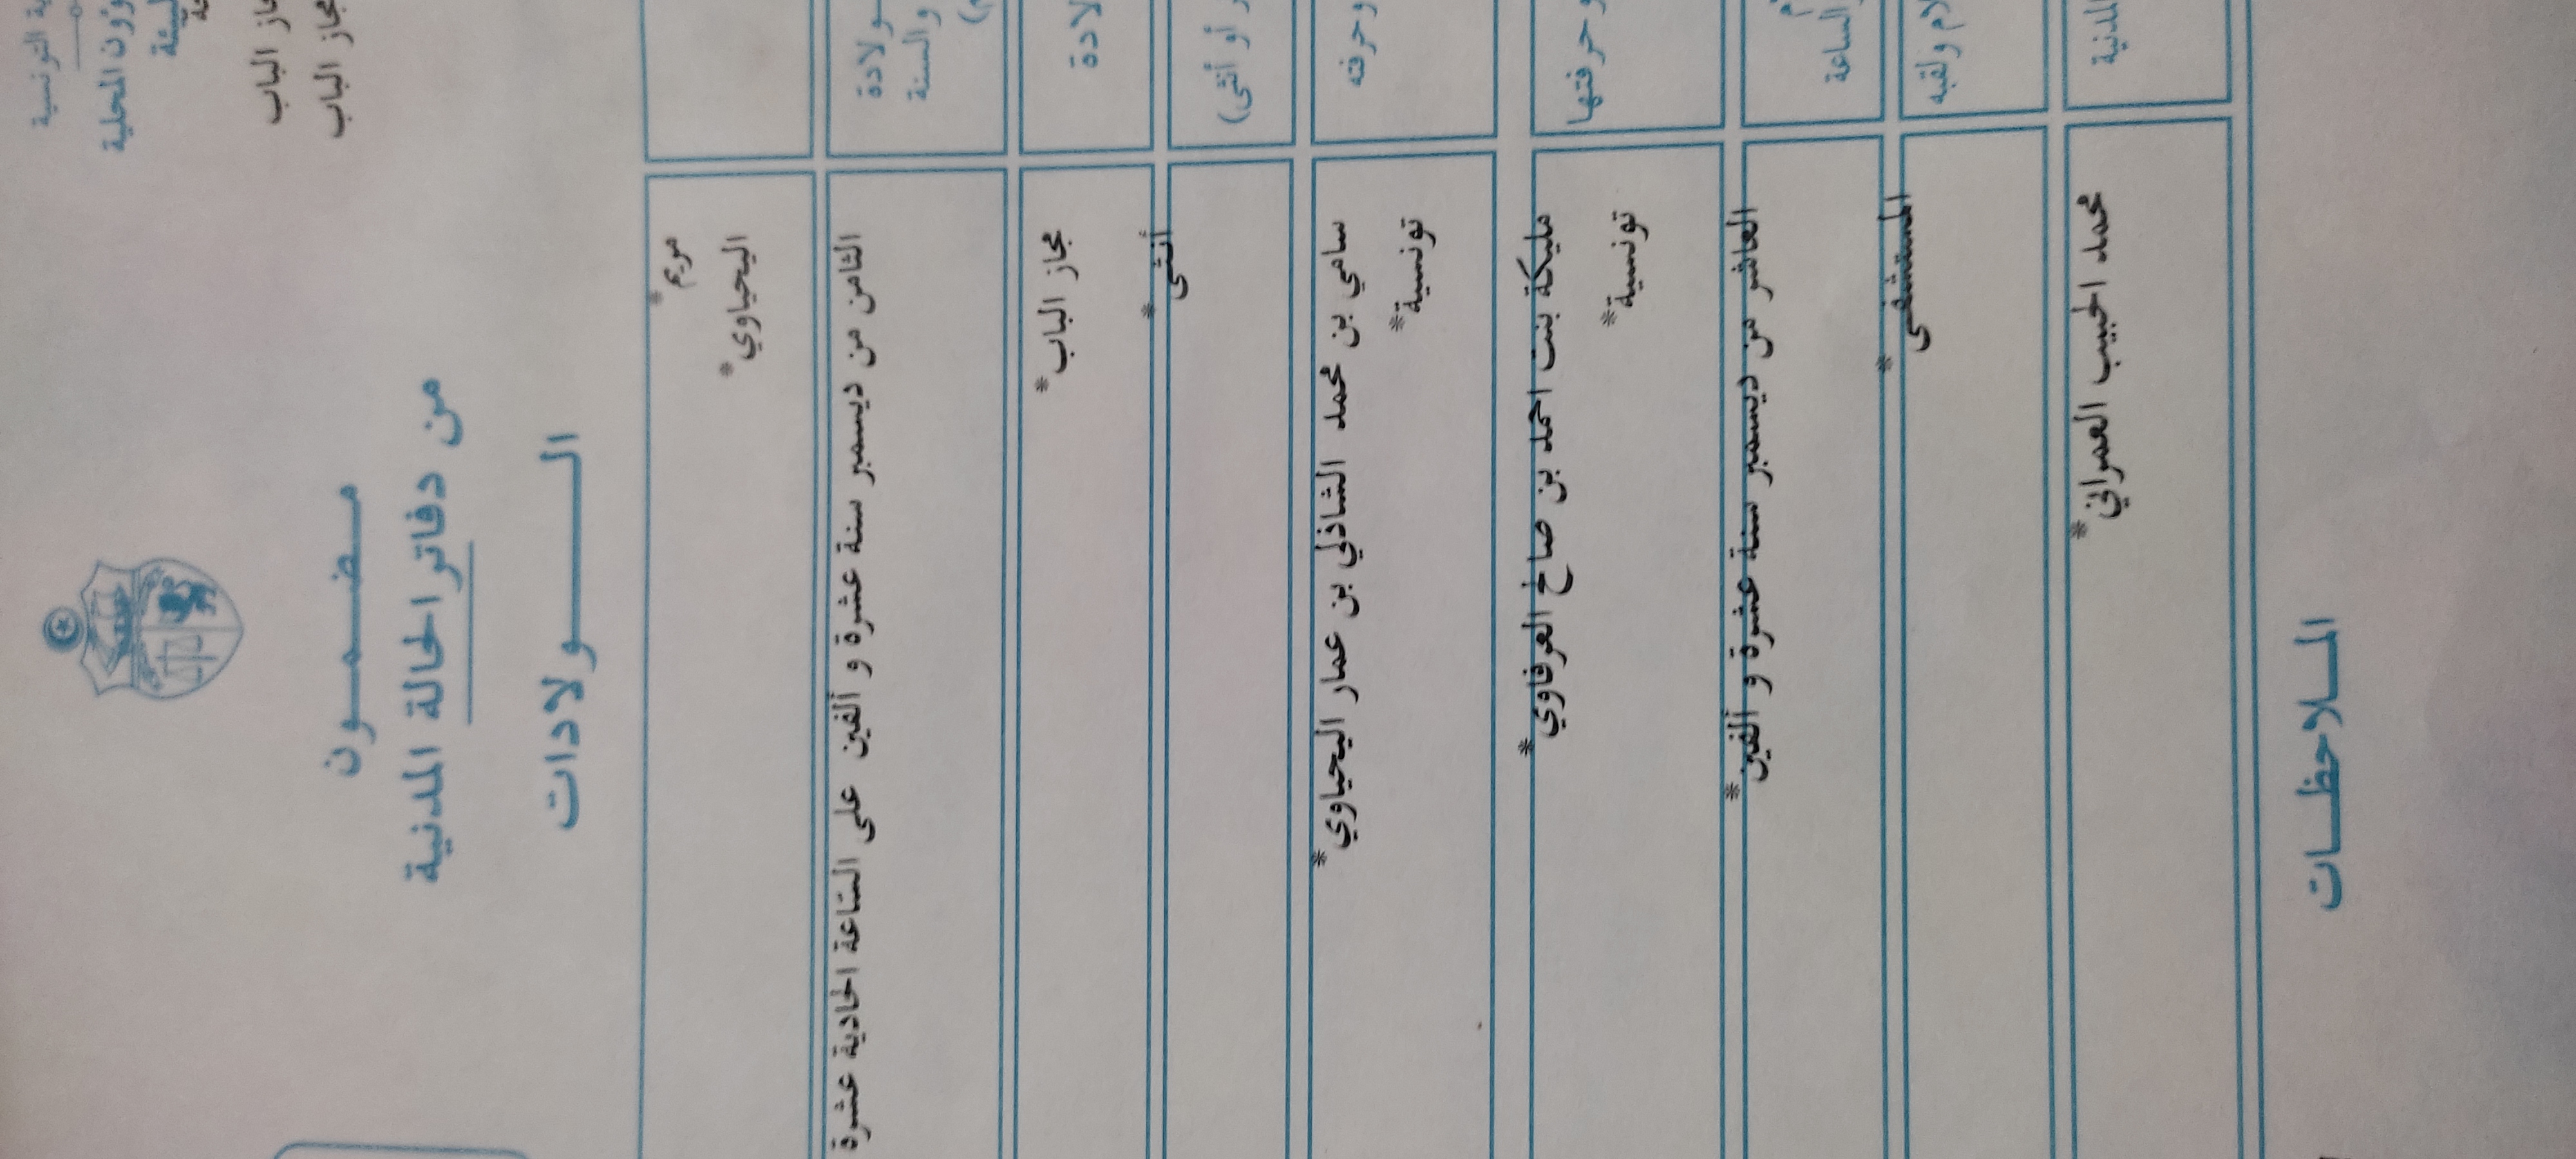 التونسية
المحلية
مجاز الباب
مضمون
من دفاتر الحالة المدنية
الولادات
مريم*
اليحياوي*
ولادة
والسنة
الثامن من ديسمبر سنة عشرة و ألفين على الساعة الحادية عشرة
مجاز الباب*
أو أنثى)
أنثى*
وحرفته
سامي بن محمد الشاذلي بن عمار اليحياوي*
تونسية*
وحرفتها
مليكة بنت احمد بن صالح العرفاوي*
تونسية*
الساعة
العاشر من ديسمبر سنة عشرة و ألفين*
ولقبه
المستشفى*
المدنية
محمد الحبيب العمراني*
الملاحظات